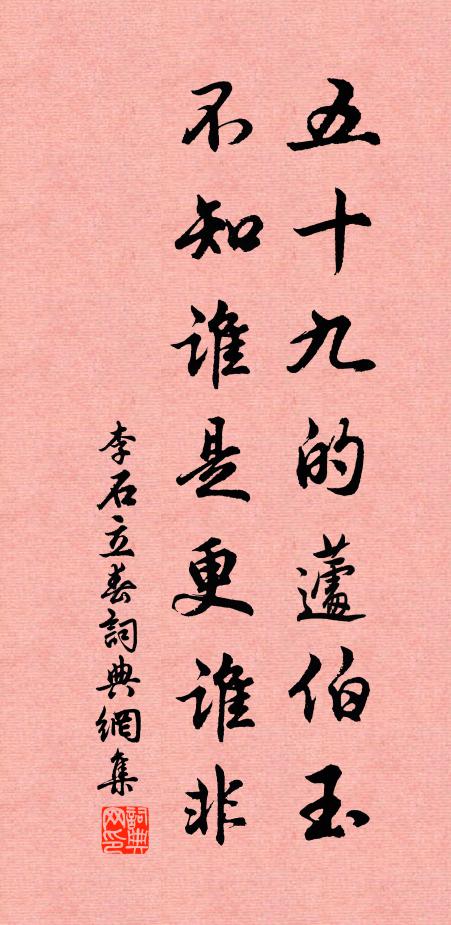 五十九的蘧伯玉
不知誰是更誰非
李石立春詞典網集
詞典网印